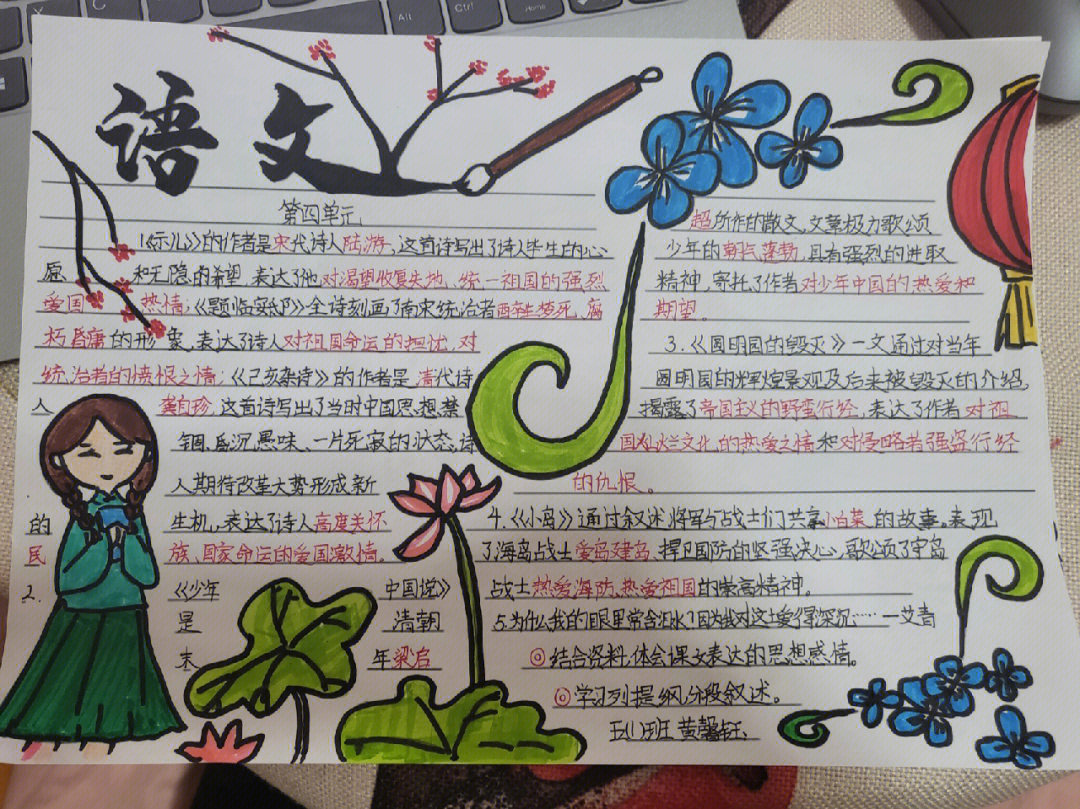 语文
第四单元
1.《示儿》的作者是宋代诗人陆游,这首诗写出了诗人毕生的心
愿和无限的希望,表达了他对渴望收复失地、统一祖国的强烈
爱国热情;《题临安邸》全诗刻画了南宋统治者醉生梦死、腐
朽昏庸的形象,表达了诗人对祖国命运的担忧,对
统治者的愤恨之情;《己亥杂诗》的作者是清代诗
人龚自珍,这首诗写出了当时中国思想禁
锢、昏沉愚昧、一片死寂的状态,诗
人期待改革大势形成新
的生机,表达了诗人高度关怀
民族、国家命运的爱国激情。
2.《少年中国说》
是清朝
末年梁启
超所作的散文,文章极力歌颂
少年的朝气蓬勃,具有强烈的进取
精神,寄托了作者对少年中国的热爱和
期望。
3.《圆明园的毁灭》一文通过对当年
圆明园的辉煌景观及后来被毁灭的介绍,
揭露了帝国主义的野蛮行经,表达了作者对祖
国灿烂文化的热爱之情和对侵略者强盗行经
的仇恨。
4.《小岛》通过叙述将军与战士们共享小白菜的故事。表现
了海岛战士爱岛建岛、捍卫国防的坚强决心,歌颂了守岛
战士热爱海防、热爱祖国的崇高精神。
5.为什么我的眼里常含泪水?因为我对这土爱得深沉……—艾青
◎结合资料,体会课文表达的思想感情。
◎学习列提纲,分段叙述。
五(1)班 黄馨钰